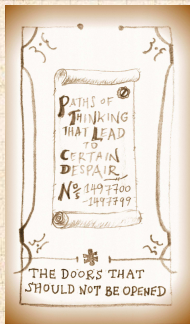 PATHS OF
THINKING
THAT LEAD
TO
CERTAIN
DESPAIR
Nos 1497700
-1497799
THE DOORS THAT
SHOULD NOT BE OPENED